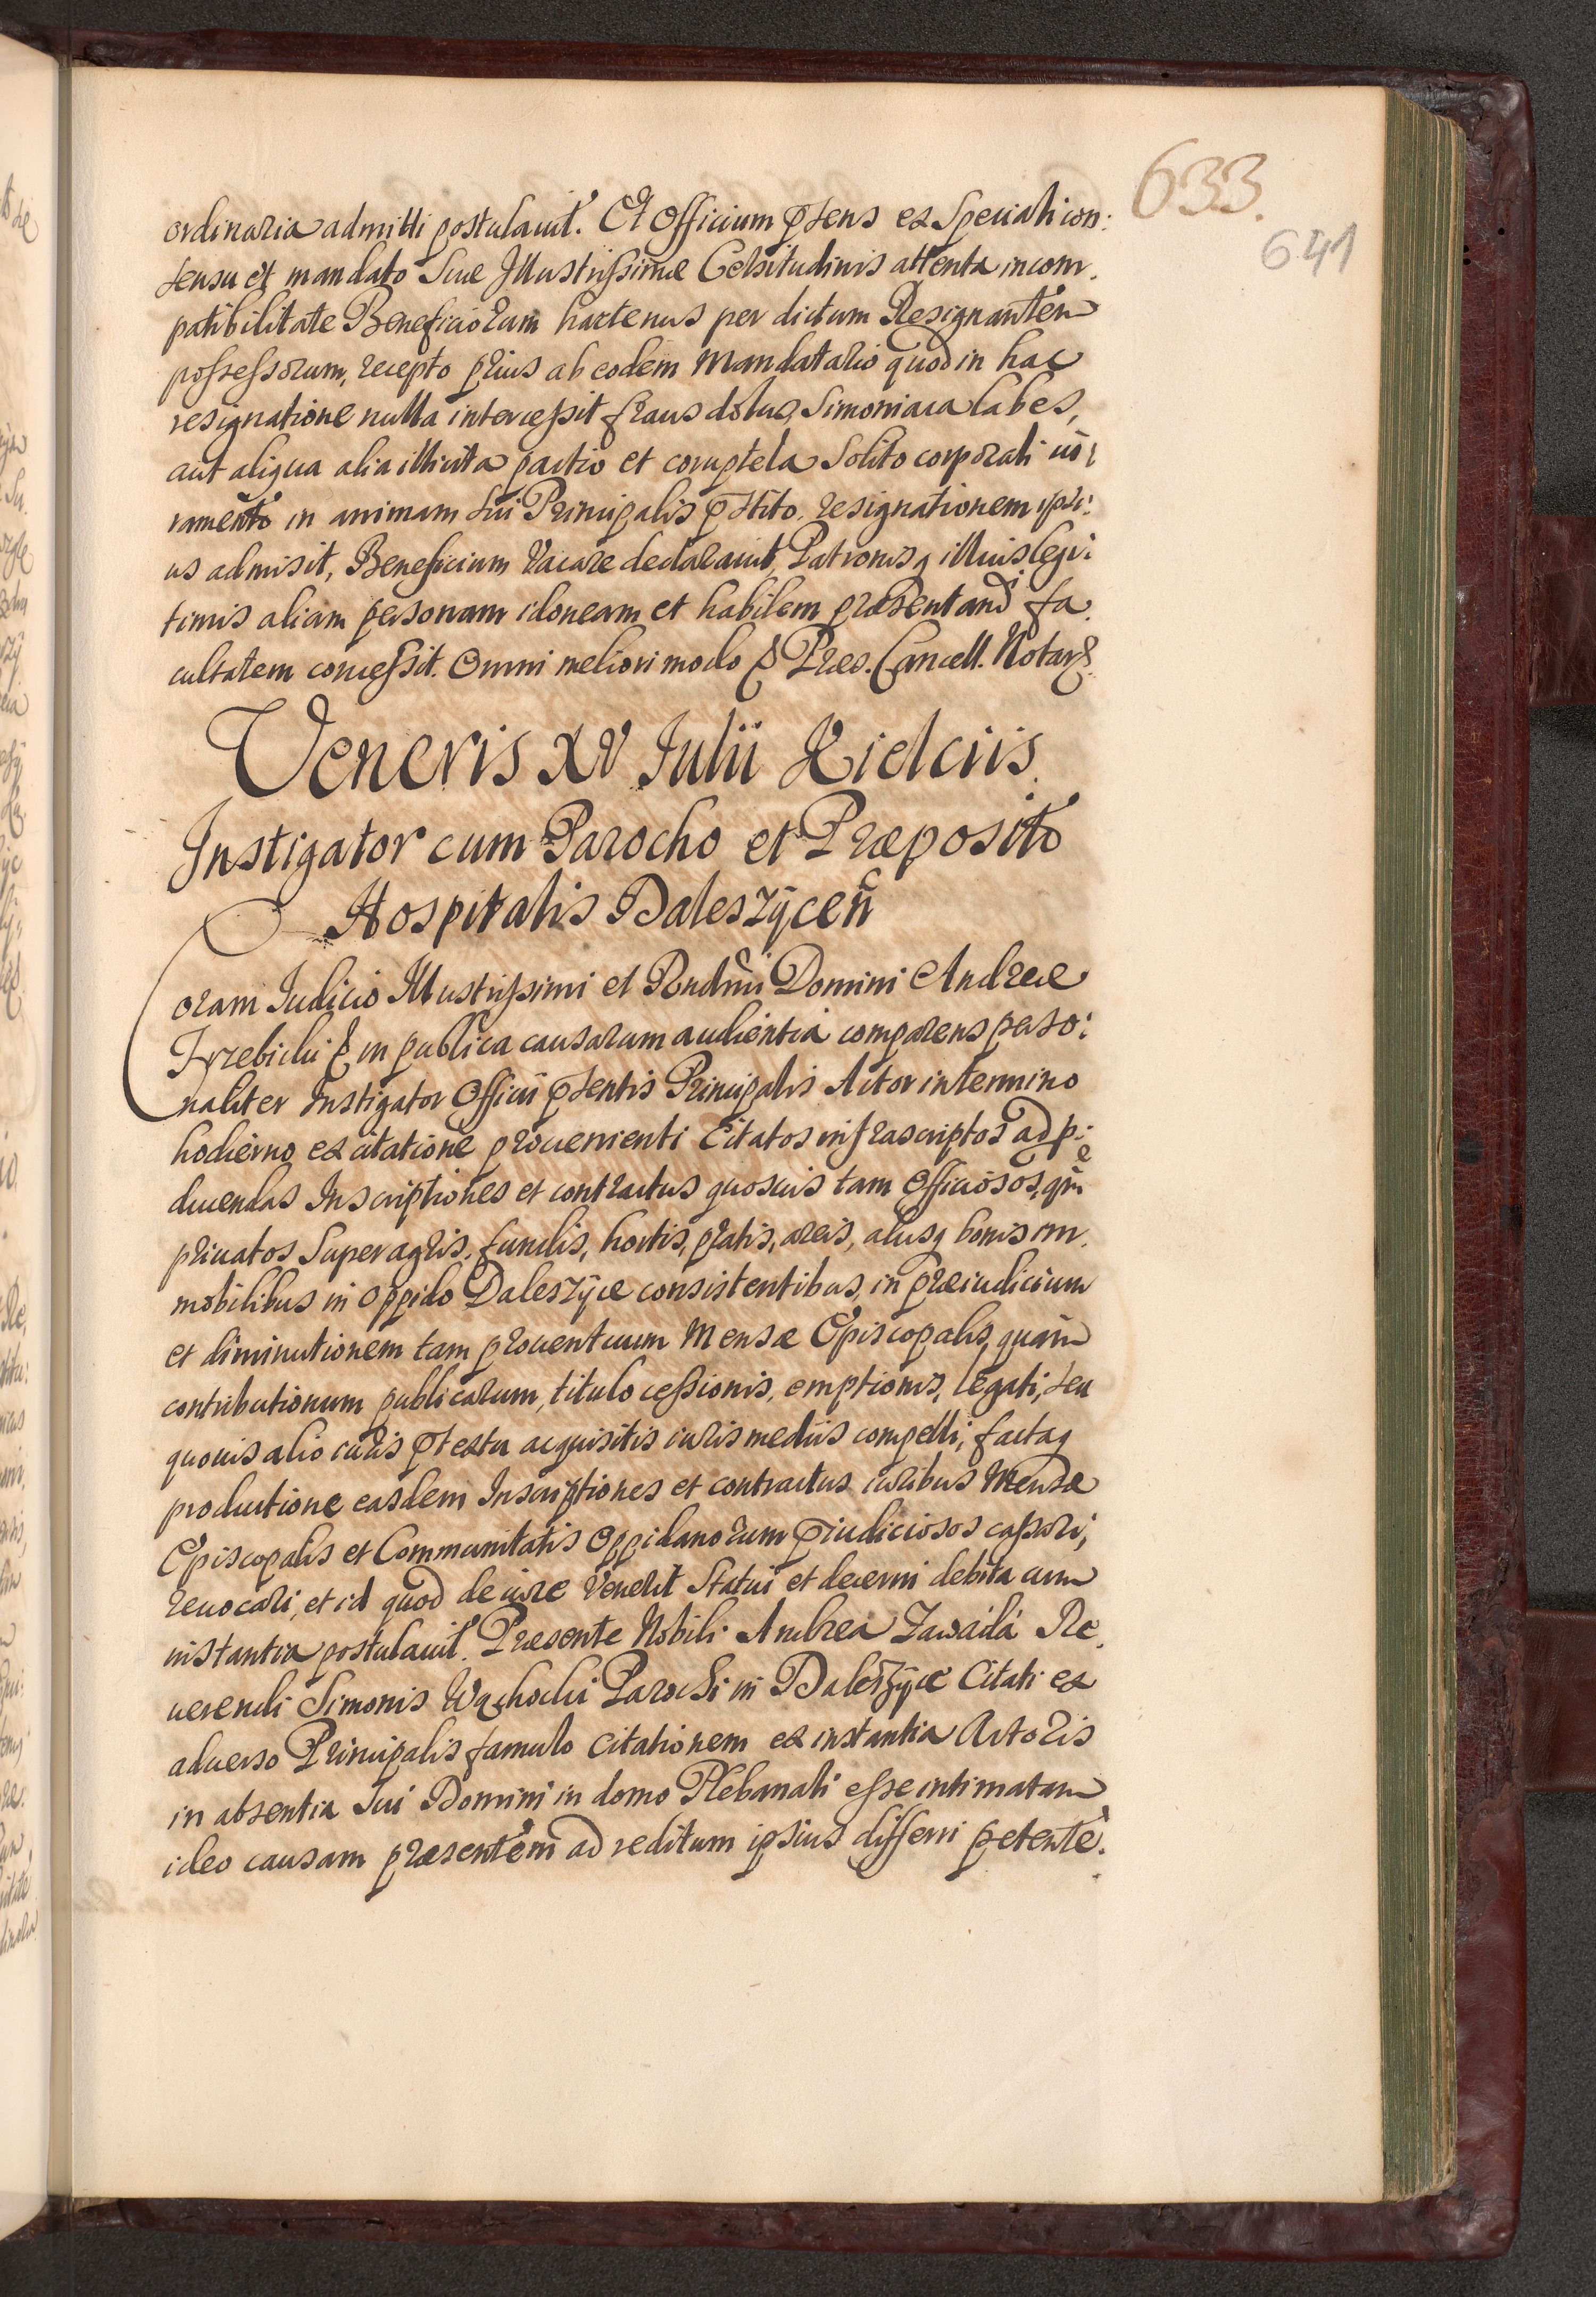 633.
641
ordinaria admitti postulauit. Et Officium pñsens ex Speciali con:
sensu et mandato Suæ Illustrissimæ Celsitudinis attenta incom.
patibilitate Beneficiorum hactenus per dictum Resignantem
possessorum, recepto prius ab eodem Mandatario quod in hac
resignatione nulla intercessit fraus dolus, Simoniaca labes,
aut aliqua alia illicita pactio et coruptela Solito corporali iu:
ramento in animam sui Principalis pstito. resignationem ipsi:
us admisit, Beneficium Vacare declarauit, Patronisq illius legi:
timis aliam personam idoneam et habilem præsentandi fa.
cultatem concessit. Omni meliori modo Præs. Cancell. Notar.
Veneris XV Iulii Kielciis.
Instigator cum Parocho et Præposito
Hospitalis Daleszÿceñ
Coram Iudicio Illustrissimi et Rndmi Domini Andreæ
Trzebicki in publica causarum audientia comparens perso:
naliter Instigator Officii psentis Principalis Actor in termino
hodierno ex citatione proueniente Citatos infrascriptos ad p:
ducendas Inscriptiones et contractus quosuis tam officiosos, qm
priuatos Super agris, fundis, hortis, pratis, areis, aliisq bonis im.
mobilibus in oppido Daleszÿce consistentibus, in præiudicium
et diminutionem tam prouentuum Mensæ Episcopalis, quam
contributionum publicarum, titulo cessionis, emptionis, legati, seu
quouis alio iuris ptextu acquisitis iuris mediis compelli, factaq
productione easdem Inscriptiones et contractus iuribus Mensæ
Episcopalis et Communitatis Oppidanorum piudiciosos cassari,
reuocari, et id quod de iure Venerit Statui et decerni debita cum
instantia postulauit. Præsente Nobili Andrea Zawada Re.
uerendi Simonis Wachocki Parochi in Daleszÿce Citati ex
aduerso Principalis famulo citationem ex instantia Actoris
in absentia sui Domini in domo Plebanali esse intimatam
ideo causam præsentem ad reditum ipsius differri petente.